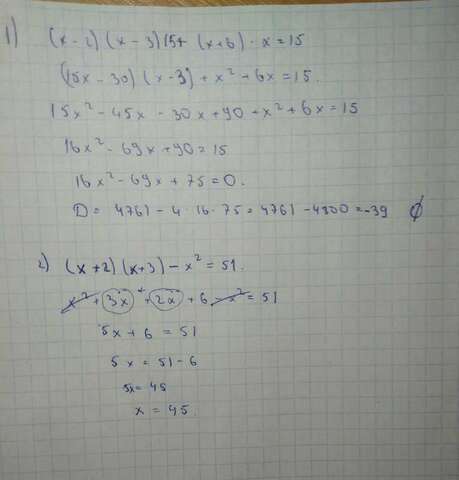 1) (x - 2) (x - 3) 15 + (x + 6) · x = 15
(15x - 30) (x - 3) + x² + 6x = 15.
15x² - 45x - 30x + 90 + x² + 6x = 15
16x² - 69x + 90 = 15
16x² - 69x + 75 = 0.
D = 4761 - 4 · 16 · 75 = 4761 - 4800 = -39 ∅
2) (x + 2) (x + 3) - x² = 51.
x² + 3x + 2x + 6 - x² = 51
5x + 6 = 51
5x = 51 - 6
5x = 45
x = 45